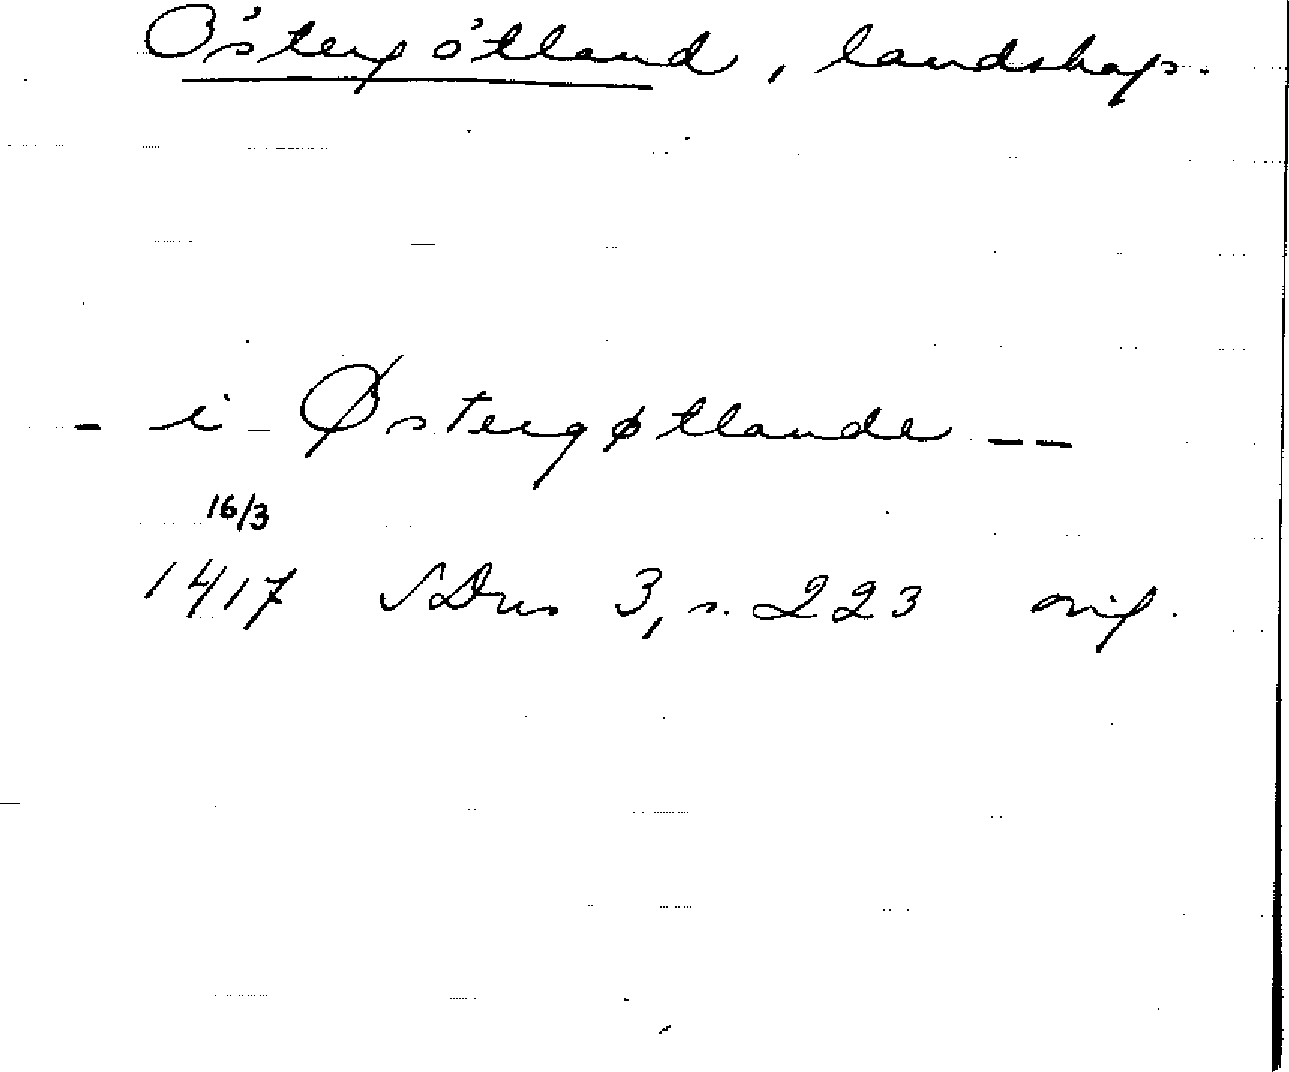 Östergötland, landskap.
- i Østergøtlande --
16/3
1417 SDns 3, s. 223 orig.